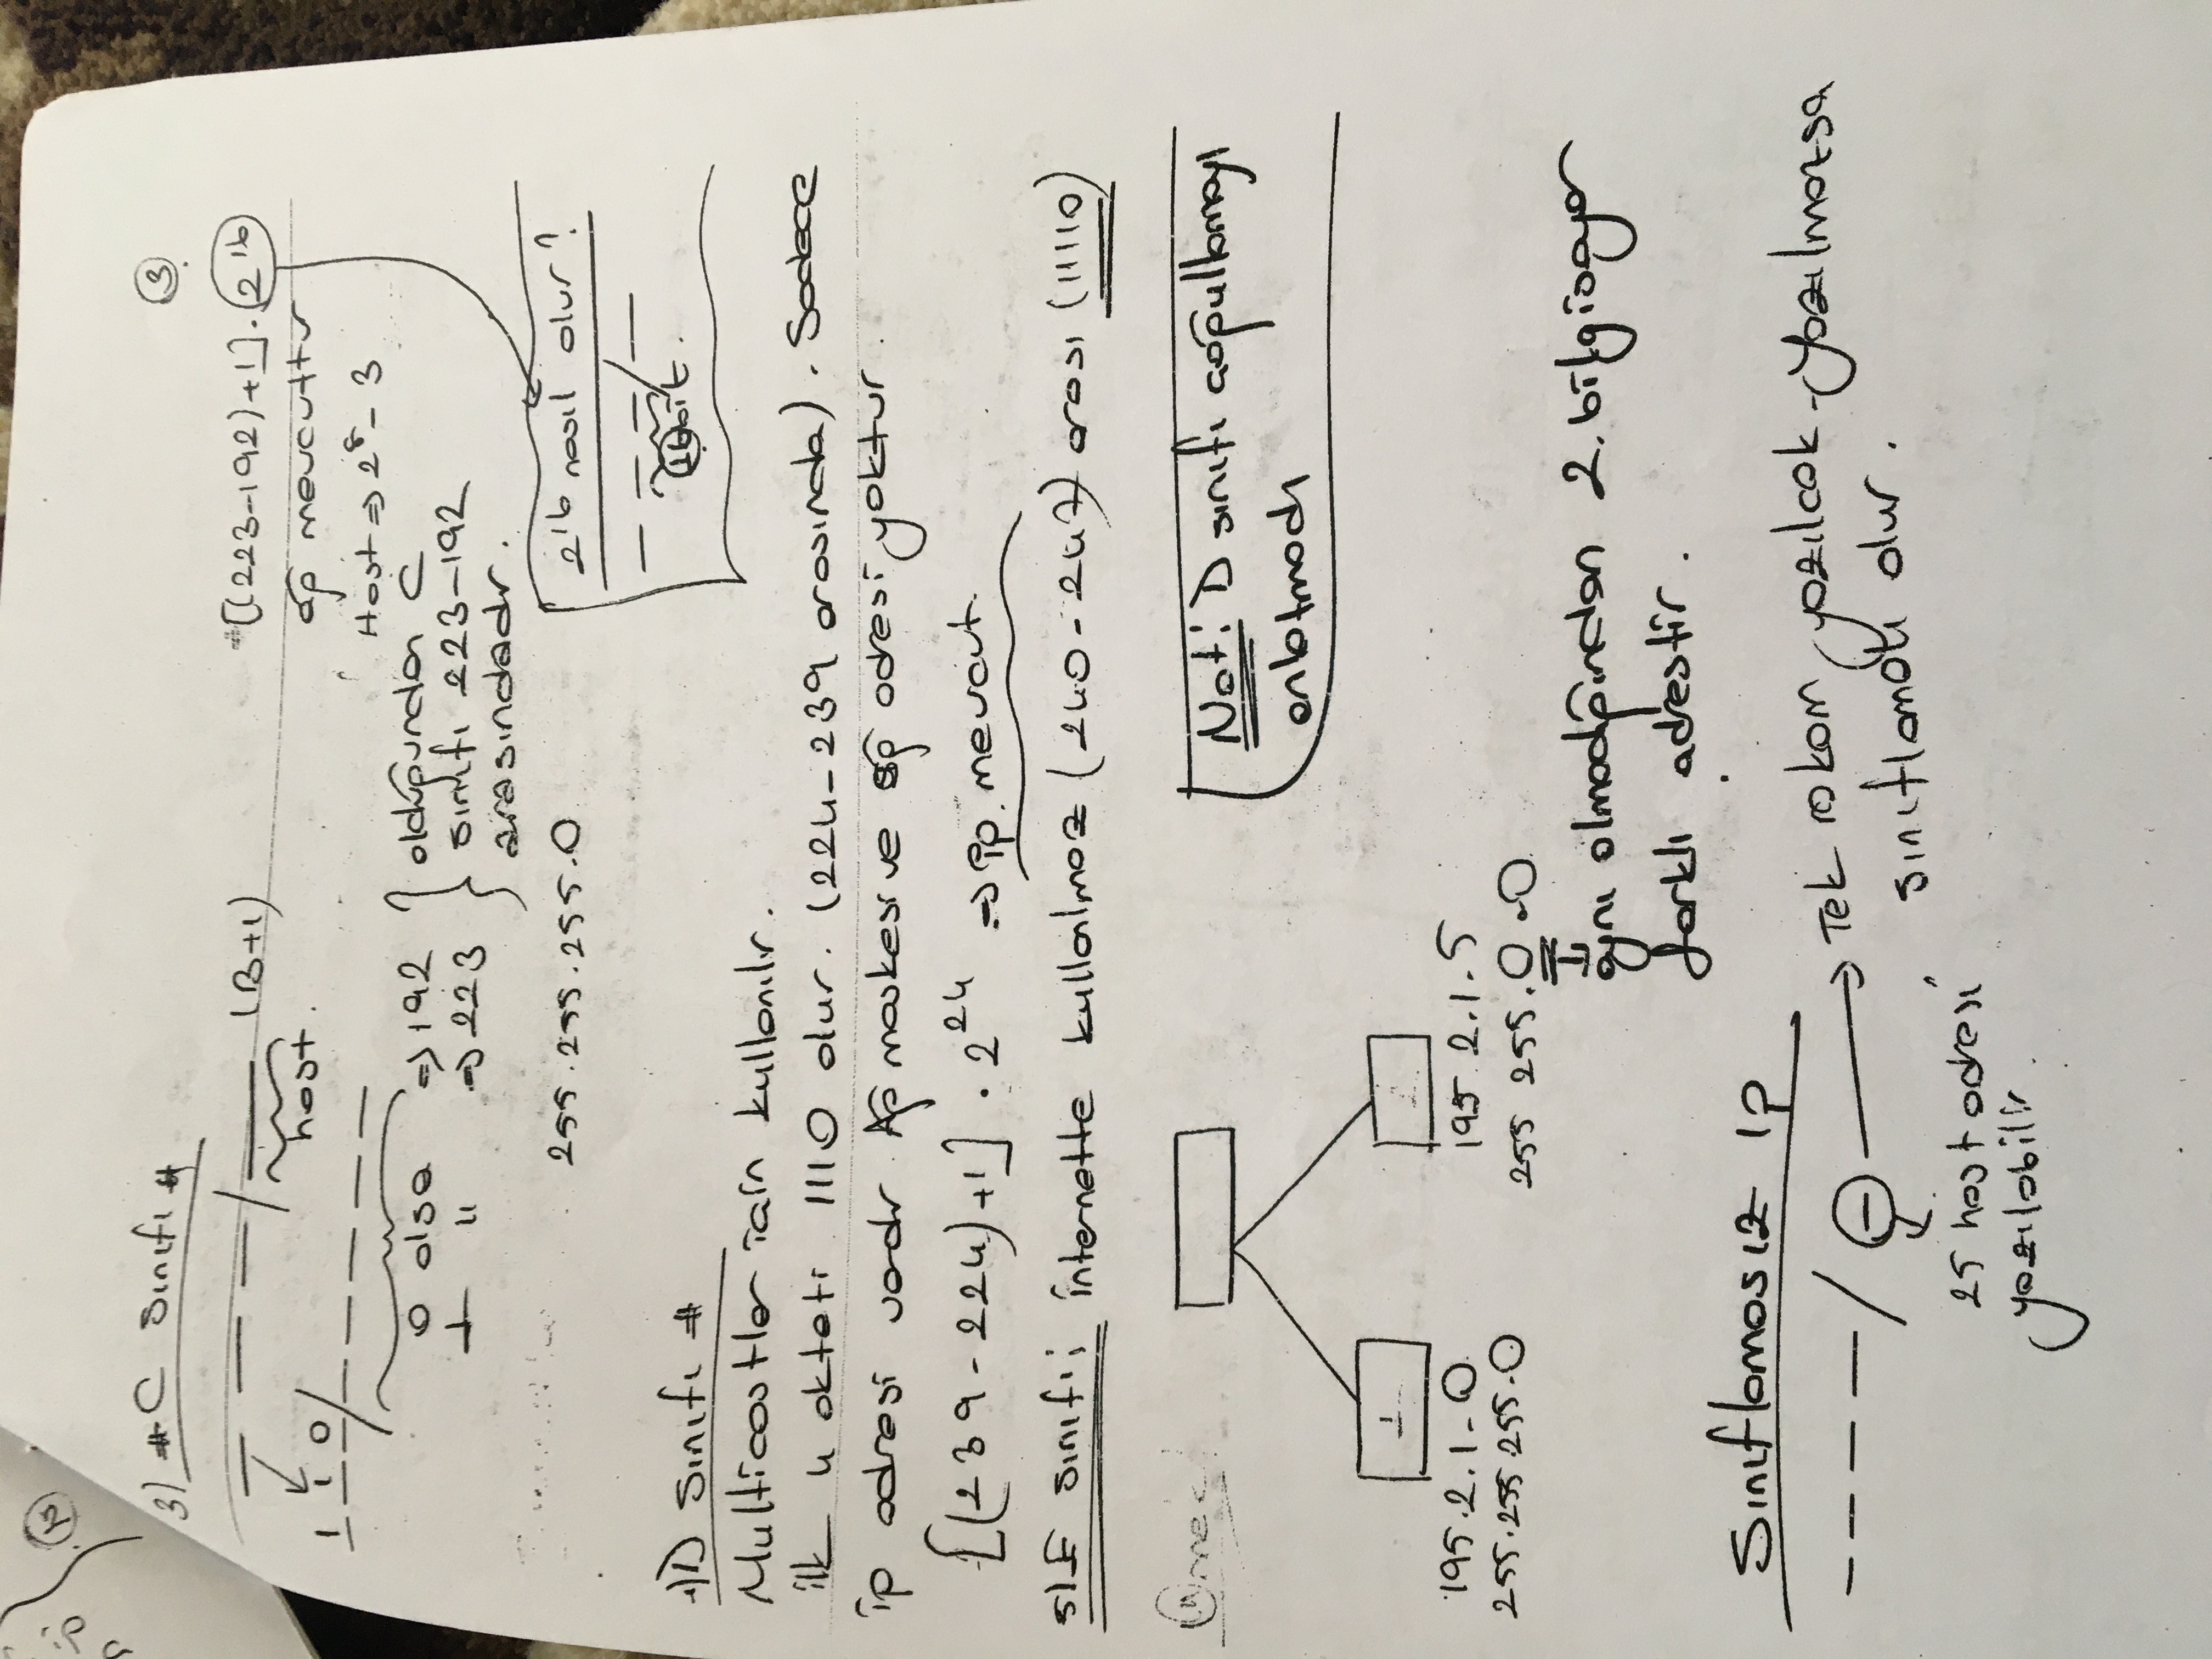 3) # C Sınıfı #
3
(B+1)
host.
1 1 0
0 olsa => 192
1 " => 223
olduğundan C
sınıfı 223-192
arasındadır.
255.255.255.0
[(223-192)+1].2^16
ağ mevcuttur
Host => 2^8 - 3
2^16 nasıl olur?
16 bit.
D Sınıfı #
Multicastler için kullanılır.
ilk 4 okteti 1110 olur. (224-239 arasında). Sadece
ip adresi vardır. Ağ maskesi ve ağ adresi yoktur.
[(239-224)+1] . 2^24 => ip mevcut.
5) E sınıfı; internette kullanılmaz (240-247) arası (11110)
Örnek:
1
2
195.2.1.0
255.255.255.0
195.2.1.5
255 255.0.0
aynı olmadığından 2. bilgisayar
farklı adrestir.
Not: D sınıfı çoğullamayı
anlatmadı
Sınıflamasız ip
Tek rakam yazılcak - Yazılmazsa
sınıflamalı olur.
25 host adresi
yazılabilir.